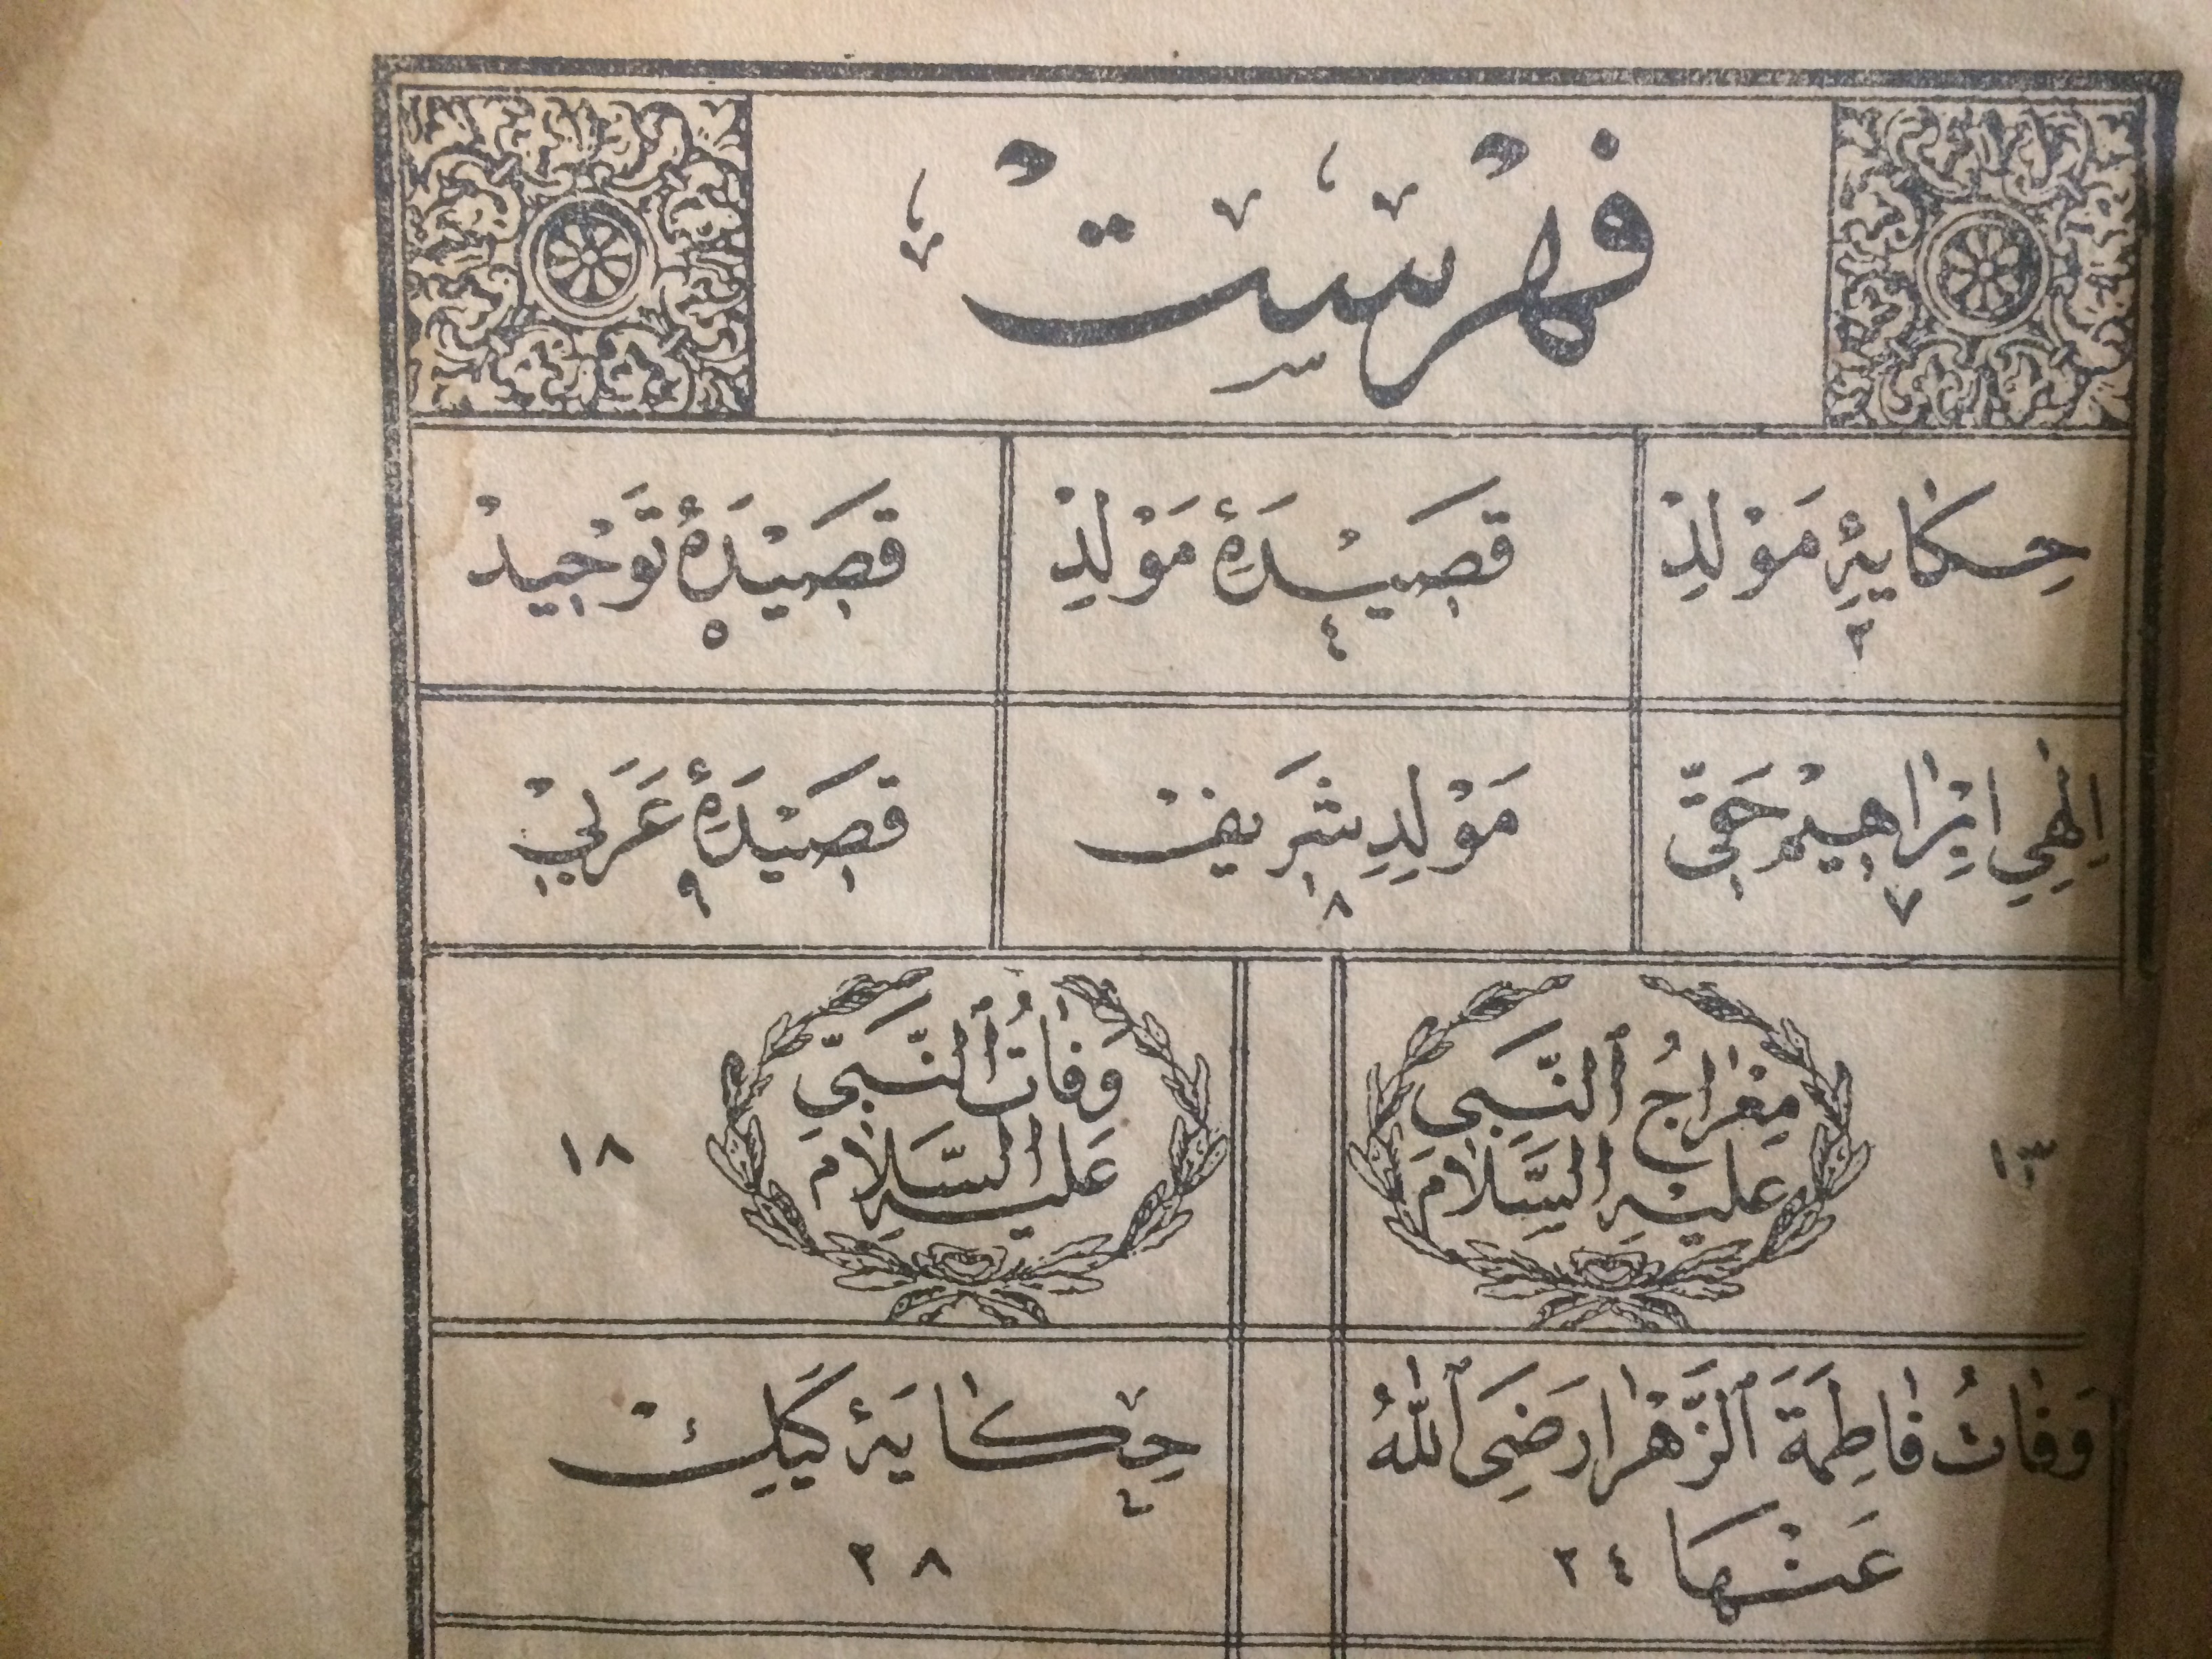 فِهْرِسْتْ
حِكَايَهِٔ مَوْلِدْ
٢
قَصِيْدَهِٔ مَوْلِدْ
٤
قَصِيْدَهٔ تَوْحِيدْ
٥
اِلٰهِي اِبْرَاهِيمْ حَقِّي
٧
مَوْلِدِ شَرِيفْ
٨
قَصِيْدَهِٔ عَرَبِيْ
٩
١٣
مِعْرَاجُ النَّبِي
عَلَيْهِ السَّلَامْ
وَفَاتُ النَّبِيّ
عَلَيْهِ السَّلَامْ
١٨
وَفَاتُ فَاطِمَةَ الزَّهْرَا رَضِيَ اللّٰهُ
عَنْهَا ٢٤
حِكَايَهٔ كَيِكْ
٢٨